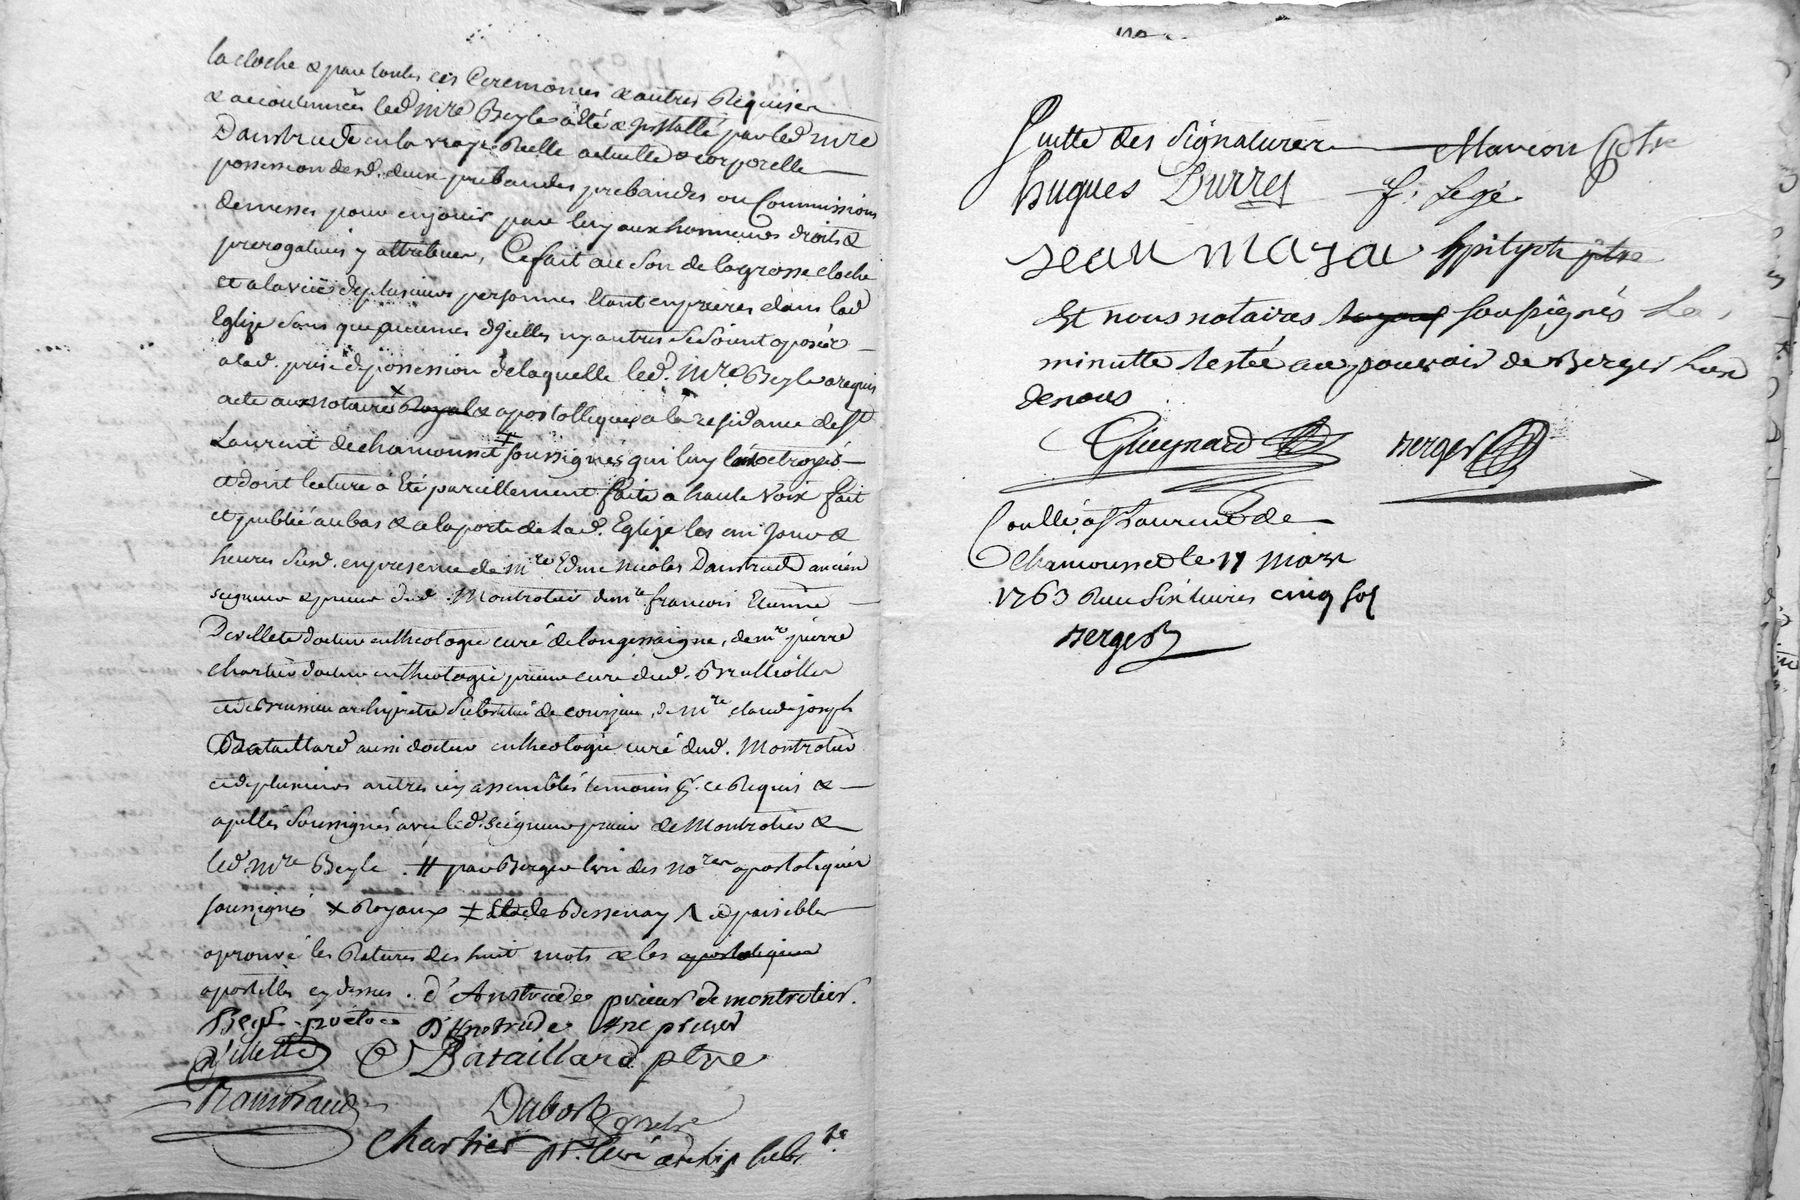 la cloche & par toutes ces Ceremonies & autres Requises
& accoutumées led mre Beyle a Eté & Installé par led mre
Danstrude en la vraye Reelle actuelle & corporelle
possession desd. deux prebandes prebandes ou Commissions
de messes pour en jouir par luy aux honneurs droits &
prerogatives y attribuer, Ce fait au son de la grosse cloche
et a la vüe de plusieurs personnes Etant en prieres dans lad
Eglize sans que aucunes d'Jcelles ny autres se soient oposér
a lad. prise de possession de laquelle led. mre Beyle a requis
acte aux notaires Royal & apostolliques a la residance de St
Laurent de chamousset soussignés qui luy l'ont octroyés
et dont lecture a Eté pareillement faite a haute voix fait
et publié au bas & a la porte de lad. Eglize les an Jour &
heures susd. en presence de mre Edme nicolas Danstrude ancien
seigneur & prieur dud. Montrotier de mre francois Etienne
Devillete docteur en theologie curé de longessaigne, de mre pierre
chartier docteur en theologie prieur curé dud. Brullioles
et de Brussieu archipretre substitué de courzieu, de mre claude joseph
Bataillard aussi docteur en theologie curé dud. Montrotier
et de plusieurs autres icy assemblés temoins pr. ce Requis &
apellés soussignés avec led. seigneur prieur de Montrotier &
led. mre Beyle. # par Berger l'un des nores apostoliques
soussignés × Royaux ‡ & de Bessenay Λ et paisible
aprouvé les Ratures des huit mots & les apostoliques
apostilles cy dessus. d'Anstrude prieur de montrotier.
Beyle D'Anstrude Anc prieur
Villette C J Bataillard ptre
Rambaud
Dubost pretre
Chartier pr. Curé archip subst.
Suitte des Signatures Marion ptre
hugues Durret f. Legé
jean maza ptre
Et nous notaires Royaux soussignés La
minutte restée au pouvoir de Berger l'un
de nous
Gueynard Berger
Coullé a St Laurent de
Chamousset le 11 mars
1763 Reçu six livres cinq sols
Berger